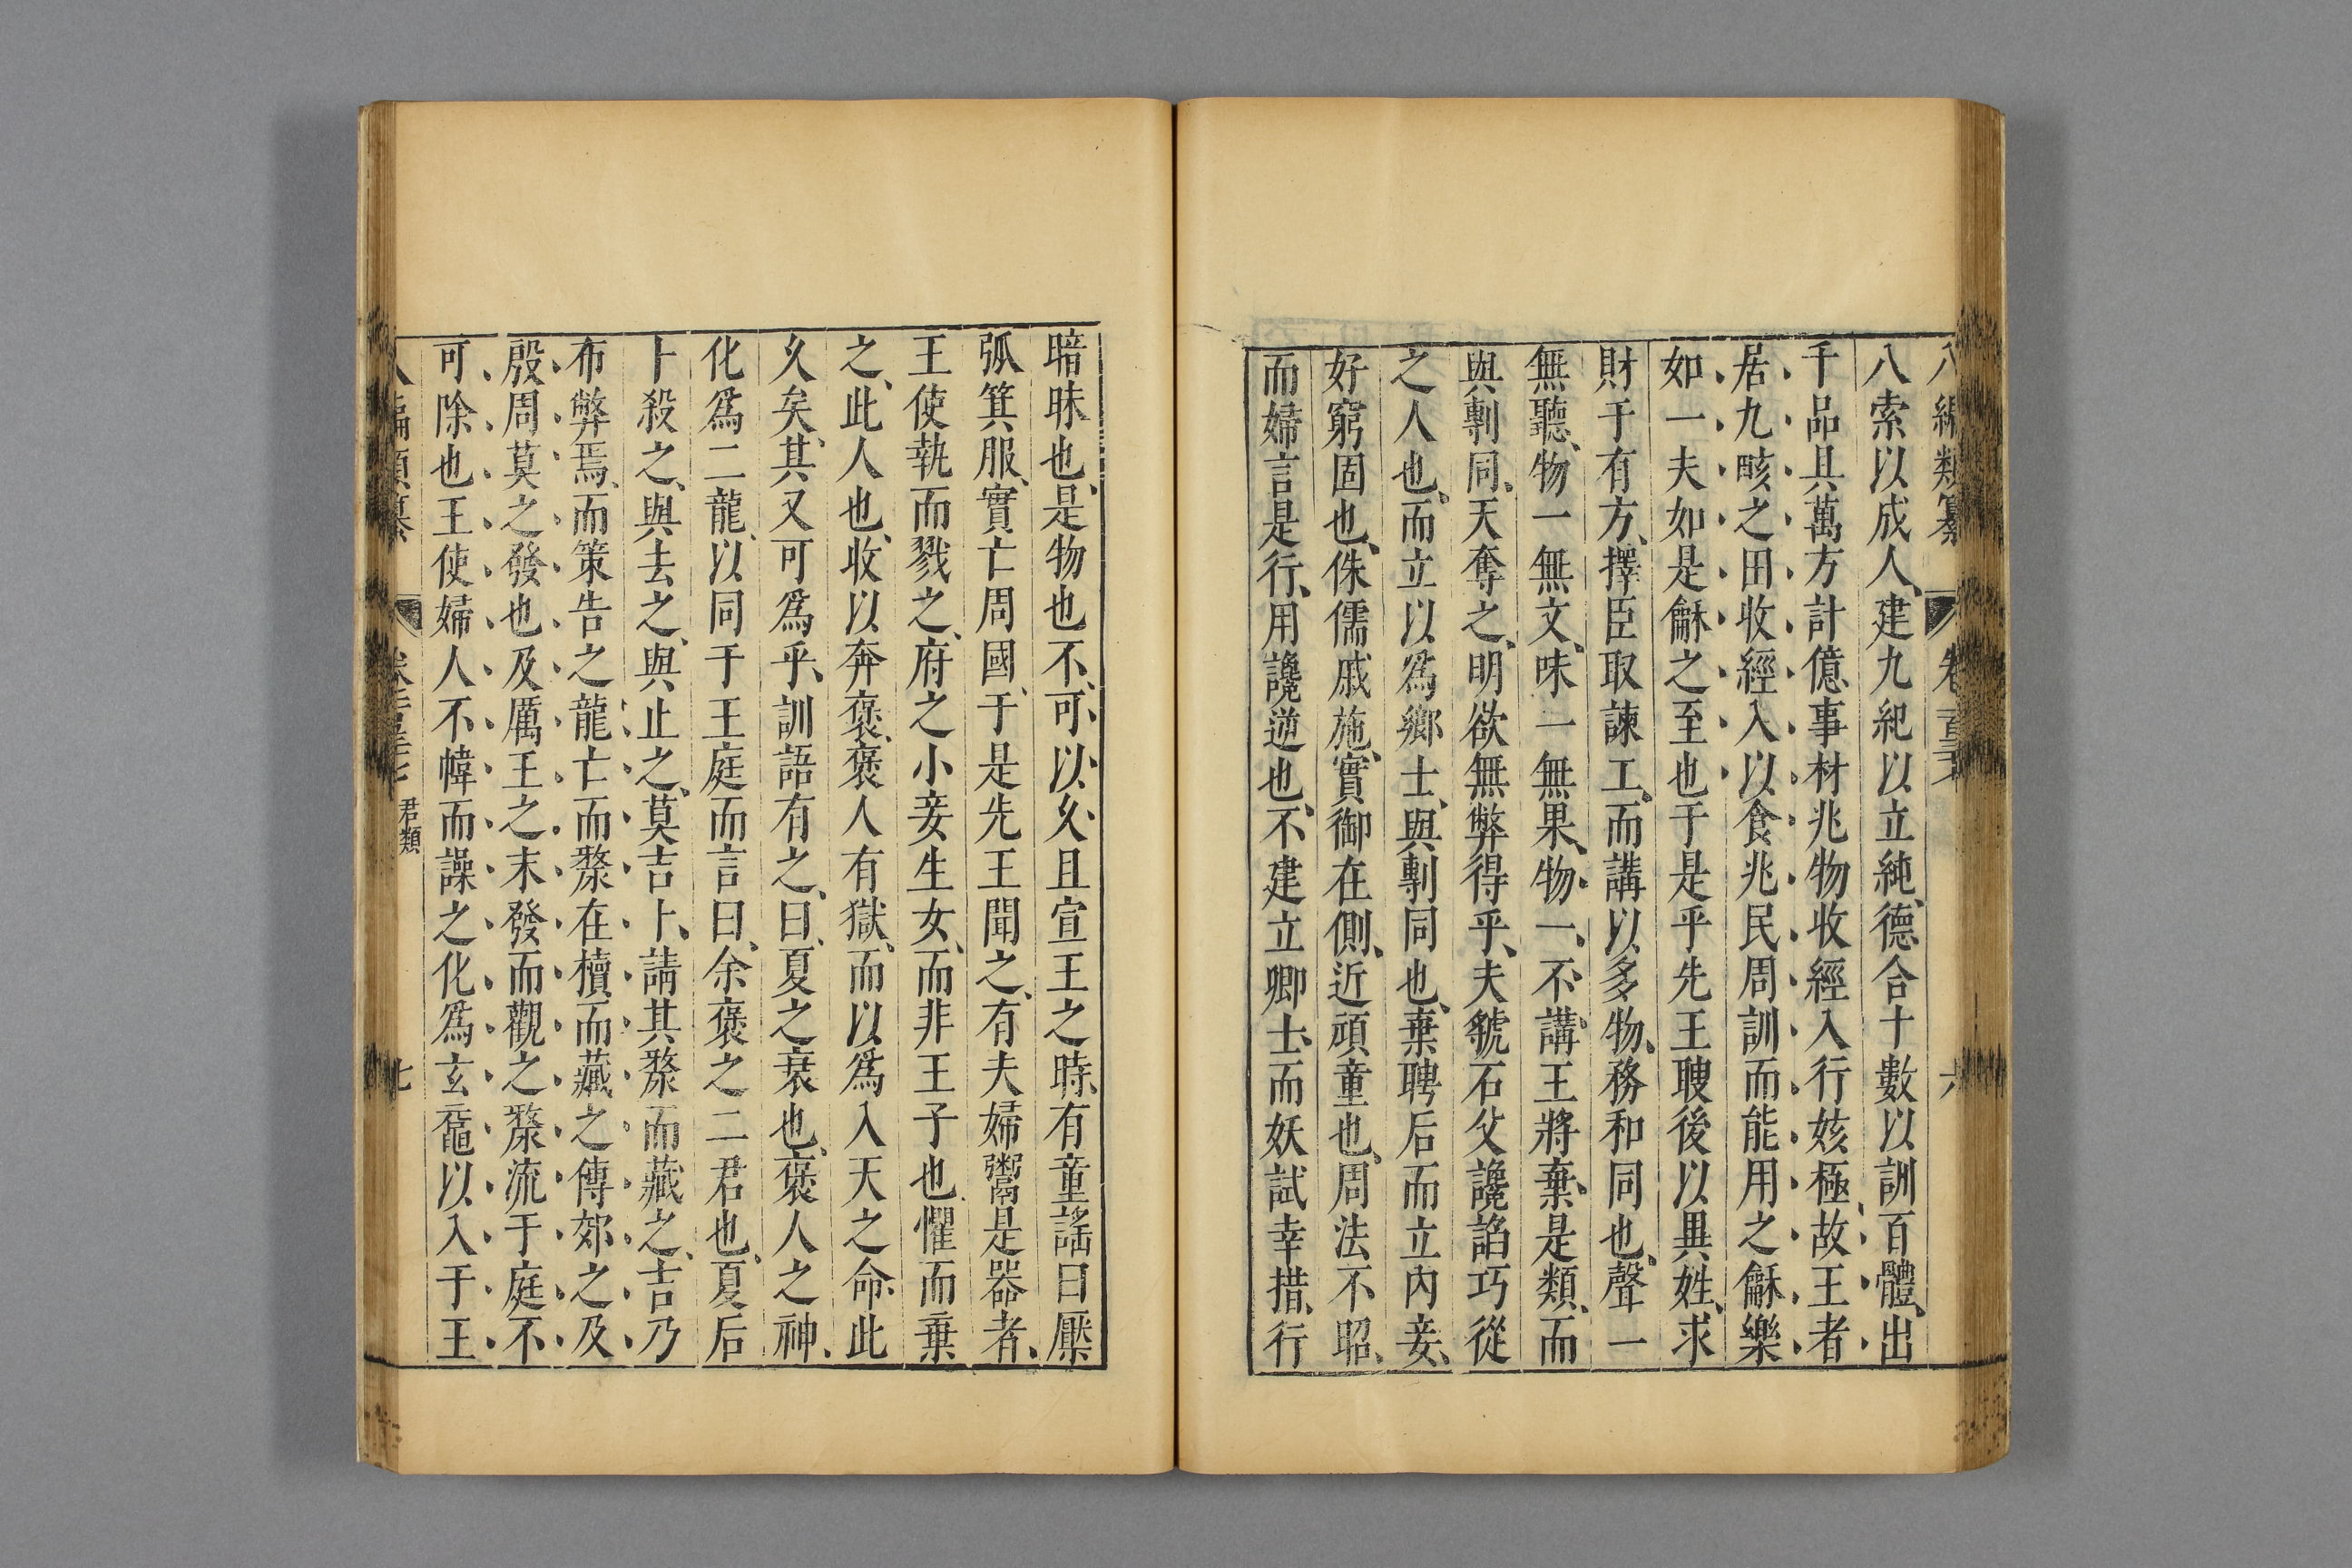 八編類纂 卷 六
八索以成人建九紀以立純德合十數以訓百體出
千品具萬方計億事材兆物收經入行姟極故王者
居九畡之田收經入以食兆民周訓而能用之龢樂
如一夫如是龢之至也于是乎先王聘後以異姓求
財于有方擇臣取諫工而講以多物務和同也聲一
無聽物一無文味一無果物一不講王將棄是類而
與剸同天奪之明欲無弊得乎夫虢石父讒諂巧從
之人也而立以爲鄉士與剸同也棄聘后而立內妾
好窮固也侏儒戚施實御在側近頑童也周法不昭
而婦言是行用讒逆也不建立卿士而妖試幸措行
暗昧也是物也不可以久且宣王之時有童謠曰檿
弧箕服實亡周國于是先王聞之有夫婦鬻是器者
王使執而戮之府之小妾生女而非王子也懼而棄
之此人也收以奔褒褒人有獄而以爲入天之命此
久矣其又可爲乎訓語有之曰夏之衰也褒人之神
化爲二龍以同于王庭而言曰余褒之二君也夏后
卜殺之與去之與止之莫吉卜請其漦而藏之吉乃
布幣焉而策告之龍亡而漦在櫝而藏之傳郊之及
殷周莫之發也及厲王之末發而觀之漦流于庭不
可除也王使婦人不幃而譟之化爲玄黿以入于王
八編類纂 君類 七